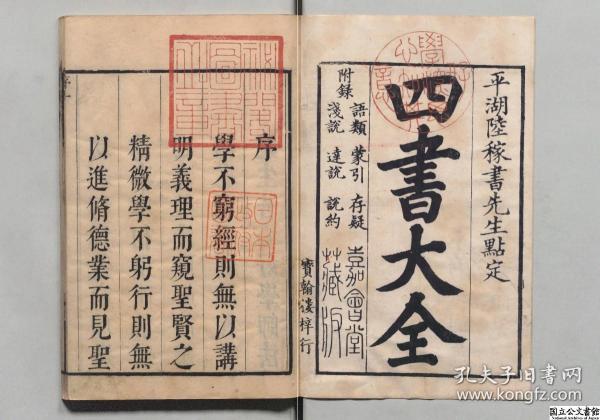 平湖陸稼書先生點定
四書大全
附錄
語類 蒙引 存疑
淺說 達說 說約
嘉會堂
藏板
寶翰樓梓行
序
學不窮經則無以講
明義理而窺聖賢之
精微學不躬行則無
以進脩德業而見聖
日本
政府
圖書
孔夫子旧书网
国立公文書館
National Archives of Japan